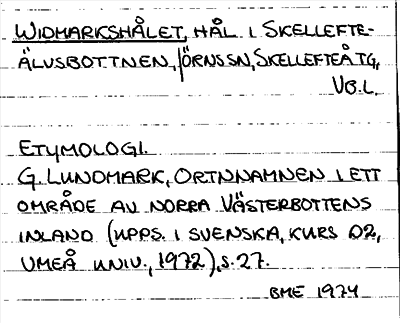 WIDMARKSHÅLET, HÅL I SKELLEFTE-
ÄLVSBOTTNEN, JÖRNS SN, SKELLEFTEÅ TG,
VB. L.
ETYMOLOGI.
G. LUNDMARK, ORTNNAMNEN I ETT
OMRÅDE AV NORRA VÄSTERBOTTENS
INLAND (UPPS. I SVENSKA, KURS D2,
UMEÅ UNIV., 1972), S. 27.
BME 1974